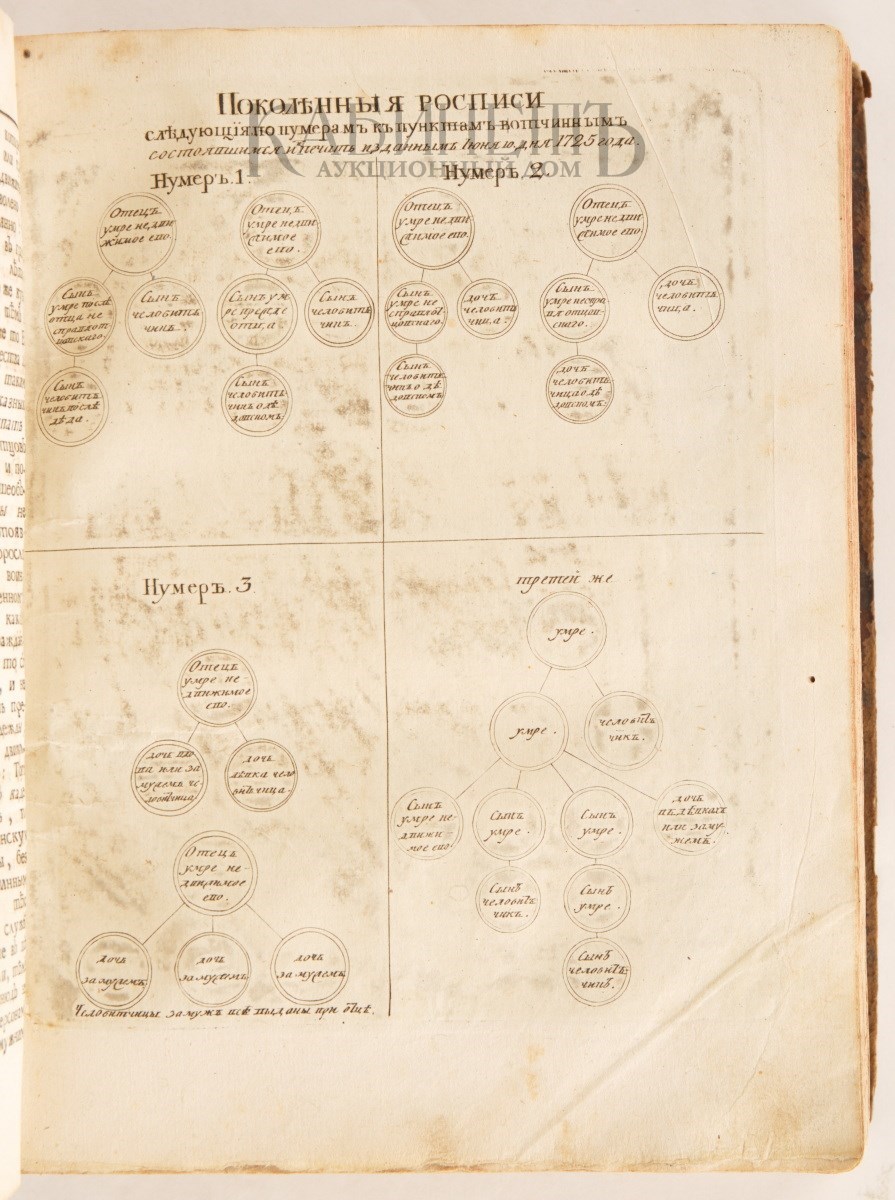 Поколѣнныя росписи
слѣдующїя по нумерамъ къ пунктамъ вотчиннымъ
состоявшимся и печать изданнымъ Iюня дня 1725 года.
КАБИНЕТЪ
АУКЦИОННЫЙ ДОМ
Нумеръ. 1.
Отецъ
умре недви
жимое его.
Сынъ
умре послѣ
отца не
справя от
цовскаго.
Сынъ
человит
чикъ.
Сынъ
человит
чикъ послѣ
дѣда.
Отецъ
умре недви
жимое
его.
Сынъ ум
ре прежде
отца.
Сынъ
человит
чикъ.
Сынъ
человит
чикъ о дѣ
довскомъ.
Нумеръ. 2.
Отецъ
умре недви
жимое его.
Сынъ
умре не
справя
цовскаго.
дочь
человит
чица.
Сынъ
человит
чикъ о дѣ
довском
Отецъ
умре недви
жимое его
Сынъ
умре не спра
вя отцов
скаго.
дочь
человит
чица.
дочь
человит
чица о дѣ
довскомъ.
Нумеръ. 3
Отецъ
умре не-
движимое
его.
дочь вдо
ва или за
мужемъ че
ловѣтчица
дочь
дѣвка чело
вѣтчица.
Отецъ
умре не-
движимое
его.
дочь
замужемъ
дочь
замужемъ
дочь
замужемъ
Человитчицы замужъ всѣ выданы при отцѣ.
третей же
умре.
умре.
человѣт
чикъ.
Сынъ
умре не-
движи-
мое его
Сынъ
умре.
Сынъ
умре.
дочь
в дѣвкахъ
или заму-
жемъ.
Сынъ
человѣт
чикъ.
Сынъ
умре.
Сынъ
человѣт
чикъ.